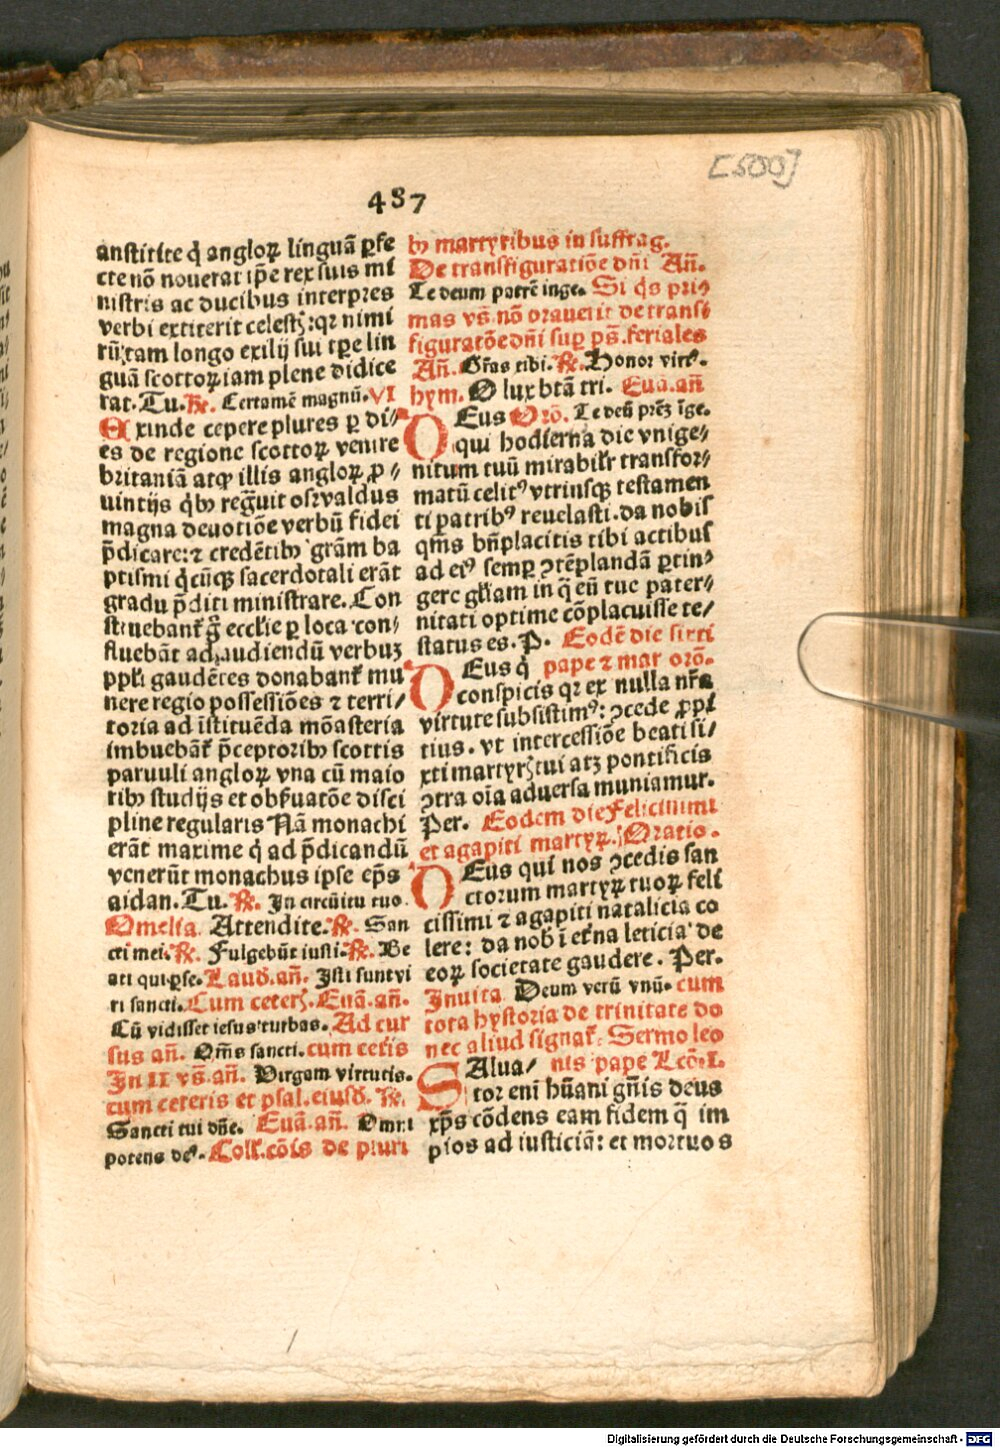 [500]
487
anstitite q̇ angloꝝ linguã ꝑfe
cte nõ noverat ip̃e rex suis mi
nistris ac ducibus interpres
verbi extiterit celestꝭ: qꝛ nimi
rũ: tam longo exilij sui tꝑe lin
guã scottoꝝ iam plene didice
rat. Tu. ℞. Certamẽ magnũ. VI
Exinde cepere plures ꝑ di⸗
es de regione scottoꝝ venire
britaniã atqꝫ illis angloꝝ ꝓ⸗
uintijs qͥbꝰ reg̃uit osvvaldus
magna deuotiõe verbũ fidei
p̃dicare: ⁊ credẽtibꝰ gr̃am ba
ptismi q̇cũqꝫ sacerdotali erãt
gradu p̃diti ministrare. Con
struebant̃ g̃ eccl̃ie ꝑ loca con⸗
fluebãt ad audiendũ verbuꝫ
ppl̃i gaudẽtes donabant̃ mu
nere regio possessiões ⁊ terri⸗
toria ad ĩstituẽda mõasteria
imbuebãt̃ p̃ceptoribꝰ scottis
paruuli angloꝝ vna cũ maio
ribꝰ studijs et obs̃uatõe disci
pline regularis Nã monachi
erãt maxime q̇ ad p̃dicandũ
venerũt monachus ipse ep̃s
aidan. Tu. ℞. In circũitu tuo
Omelia. Attendite. ℞. San
cti mei. ℞. Fulgebũt iusti. ℞. Be
ati qui ꝑse. Laud. añ. Isti sunt vi
ri sancti. Cum ceterꝭ. Euã. añ.
Cũ vidisset iesus turbas. Ad cur
sus añ. Om̃s sancti. cum cet̃is
In II vs̃. añ. Virgam virtutis.
cum ceteris et psal. eiusd̃. ℞.
Sancti tui dñe. Euã. añ. Omni
potens deꝰ. Coll̃. cõis de pluri
bꝰ martyribus in suffrag.
De transfiguratiõe dñi Añ.
Te deum patrẽ inge. Si qͥs pri⸗
mas vs̃ nõ orauerit de transi
figuratõe dñi suꝑ ps̃. feriales
Añ. Gr̃as tibi. ℞. Honor virtꝰ.
hym. O lux bt̃a tri. Eua. añ
Te deũ pr̃eꝫ ĩge.
DEus Orõ.
qui hodierna die vnige⸗
nitum tuũ mirabilr̃ transfor⸗
matũ celitꝰ vtriusqꝫ testamen
ti patribꝰ reuelasti. da nobis
qm̃s bñplacitis tibi actibus
ad eiꝰ semꝑ ꝯtẽplandã ꝑtin⸗
gere gl̃iam in q̃ eũ tue pater⸗
nitati optime cõplacuisse te⸗
status es. P. Eodẽ die sixti
DEus q̇ pape ⁊ mar orõ.
conspicis qꝛ ex nulla nr̃a
virtute subsistimꝰ: ꝯcede ꝓpi
tius. vt intercessiõe beati si⸗
xti martyrꝭ tui atqꝫ pontificis
ꝯtra oĩa aduersa muniamur.
Per. Eodem die Felicissimi
et agapiti martyꝝ. Oratio.
DEus qui nos ꝯcedis san
ctorum martyꝝ tuoꝝ feli
cissimi ⁊ agapiti natalicia co
lere: da nob̃ ĩ et̃na leticia de
eoꝝ societate gaudere. Per.
Inuita Deum verũ vnũ. cum
tota hystoria de trinitate do
nec aliud signat̃. Sermo leo
SAlua⸗ nis pape Lcõ. I.
tor eni hũani gñis deus
xp̃s cõdens eam fidem q̃ im
pios ad iusticiã: et mortuos
Digitalisierung gefördert durch die Deutsche Forschungsgemeinschaft - DFG